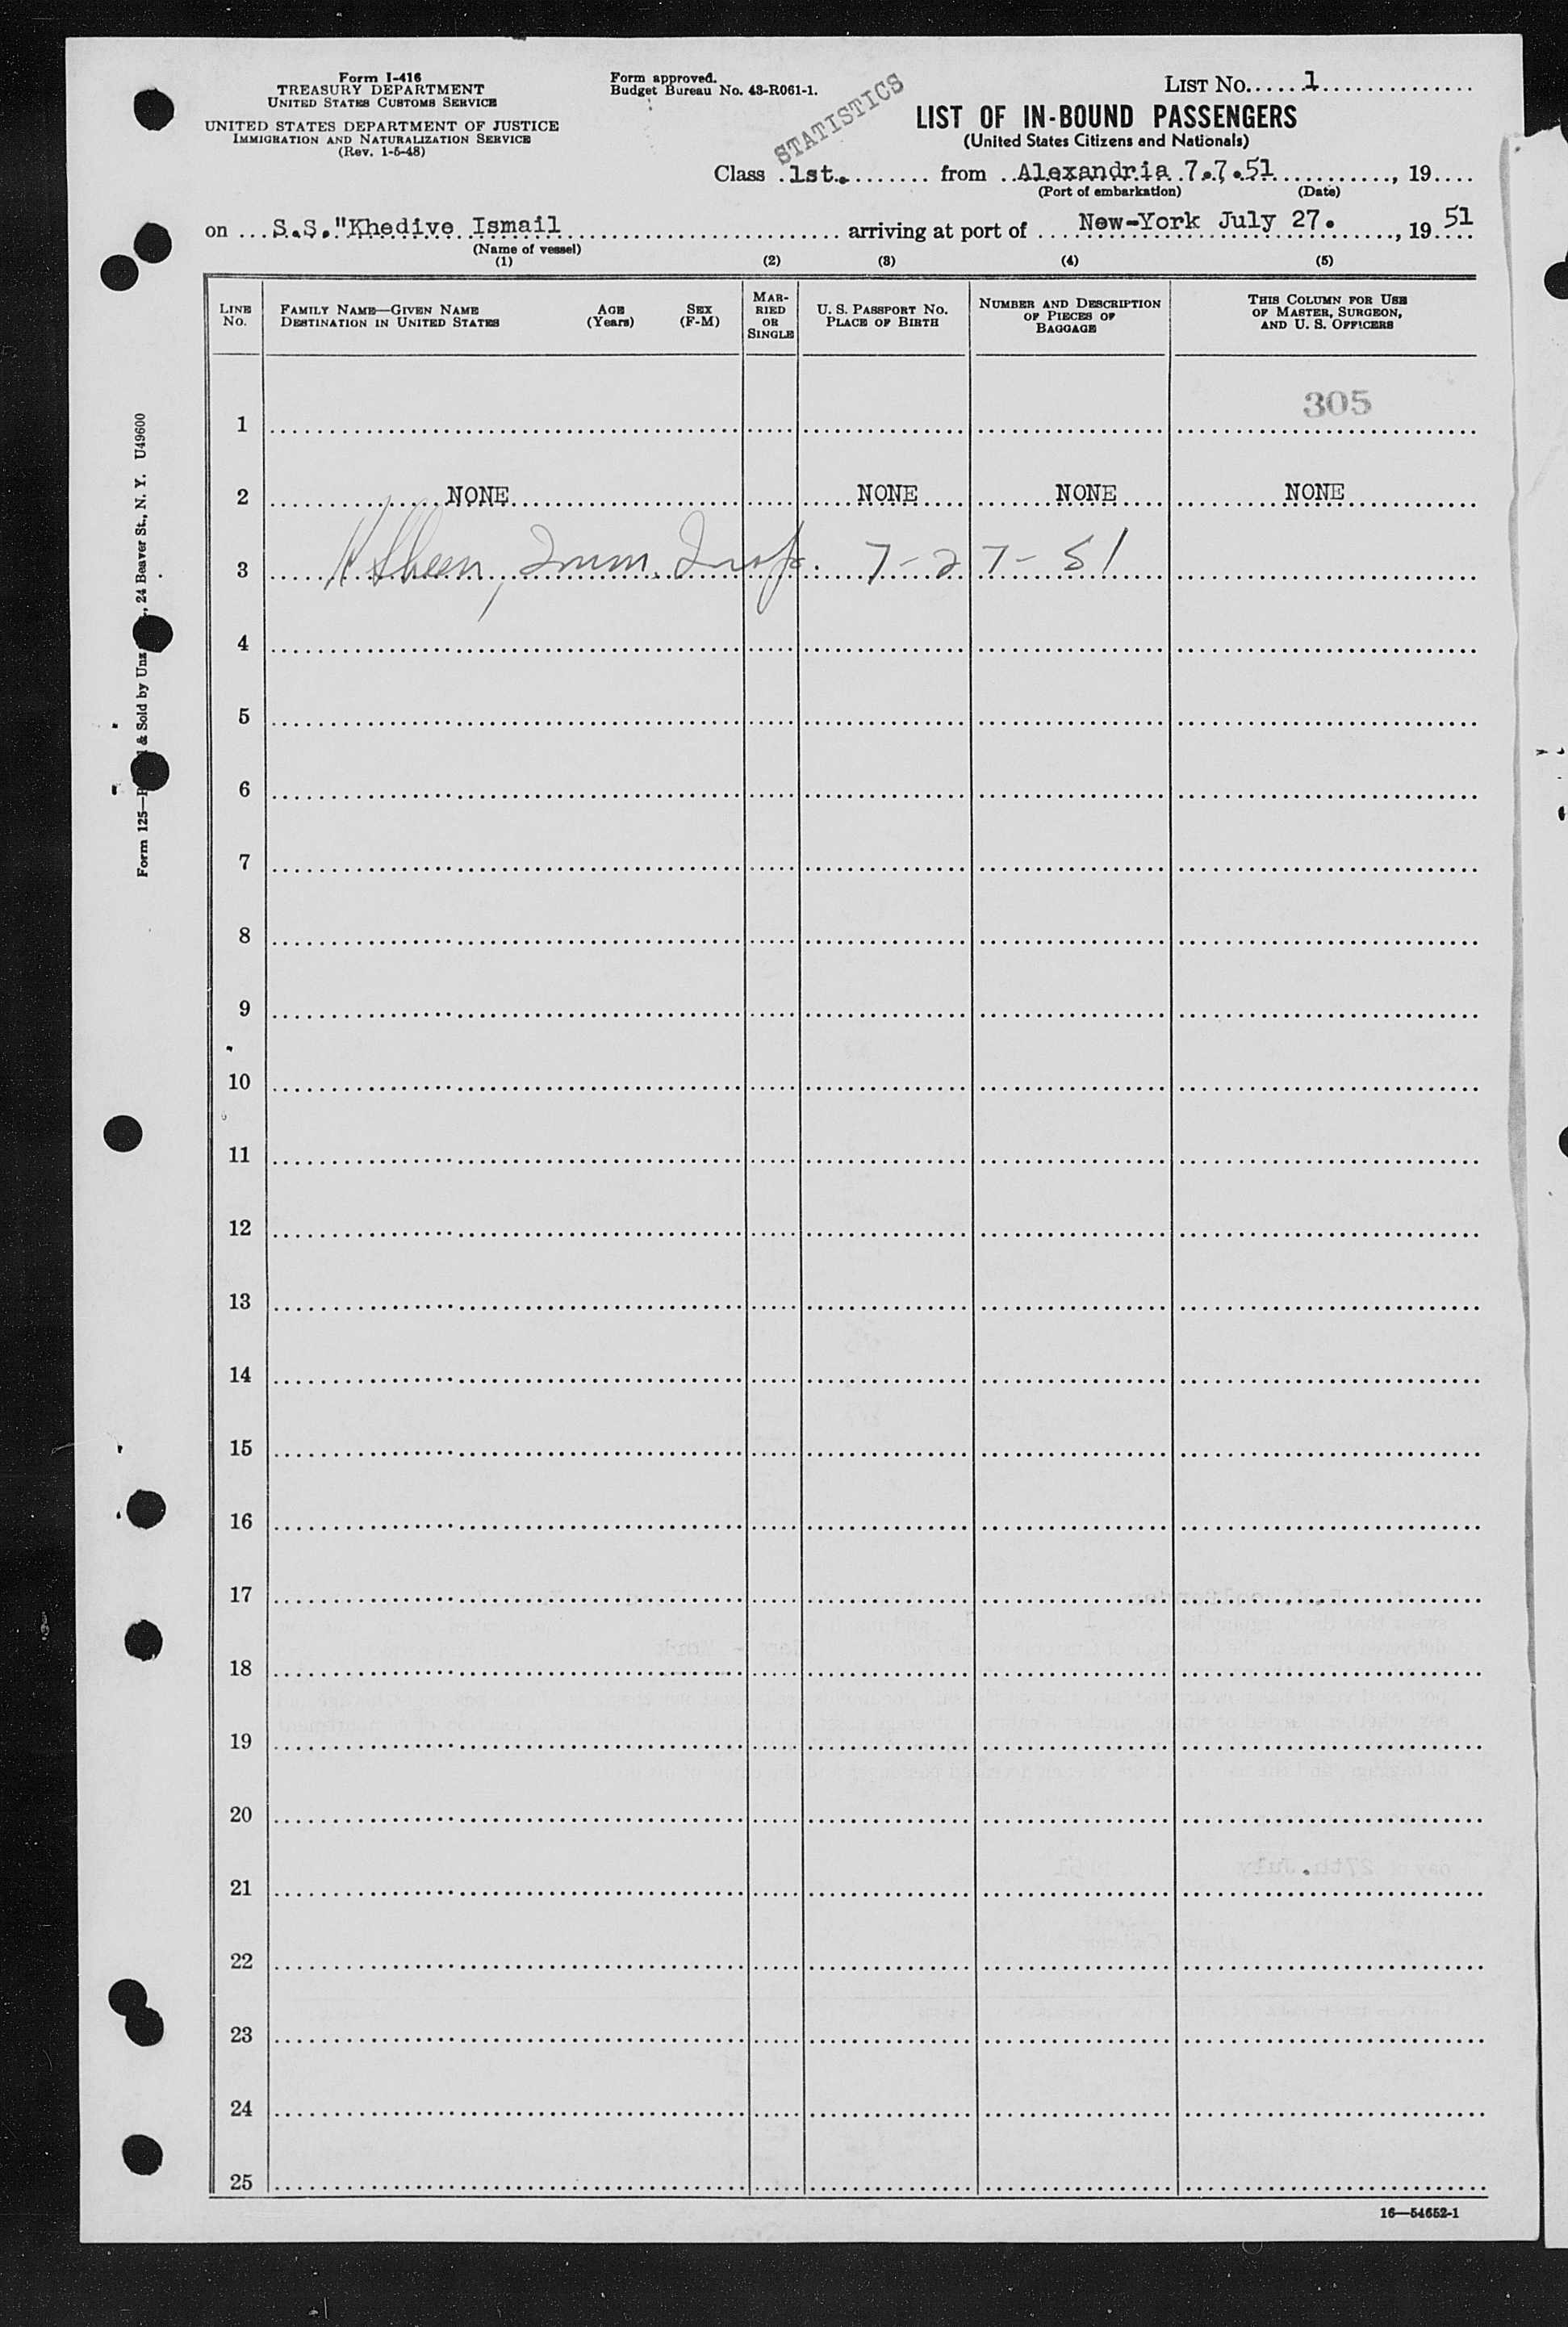 Form I-416
TREASURY DEPARTMENT
UNITED STATES CUSTOMS SERVICE
UNITED STATES DEPARTMENT OF JUSTICE
IMMIGRATION AND NATURALIZATION SERVICE
(Rev. 1-5-48)
Form approved.
Budget Bureau No. 43-R061-1.
STATISTICS
LIST No......1...............
LIST OF IN-BOUND PASSENGERS
(United States Citizens and Nationals)
Class .1st......... from ..Alexandria 7.7.51............, 19....
(Port of embarkation) (Date)
on ...S.S."Khedive Ismail........................ arriving at port of ....New-York July 27......, 19 51
(Name of vessel)
(1) (2) (3) (4) (5)
LINE No.
FAMILY NAME—GIVEN NAME
DESTINATION IN UNITED STATES
AGE (Years)
SEX (F-M)
MARRIED OR SINGLE
U. S. PASSPORT NO.
PLACE OF BIRTH
NUMBER AND DESCRIPTION OF PIECES OF BAGGAGE
THIS COLUMN FOR USE OF MASTER, SURGEON, AND U. S. OFFICERS
1 305
2 NONE NONE NONE NONE
3 Imm. Insp. 7-27-51
4
5
6
7
8
9
10
11
12
13
14
15
16
17
18
19
20
21
22
23
24
25
16—54652-1
Form 125— & Sold by Unz , 24 Beaver St., N. Y. U49600